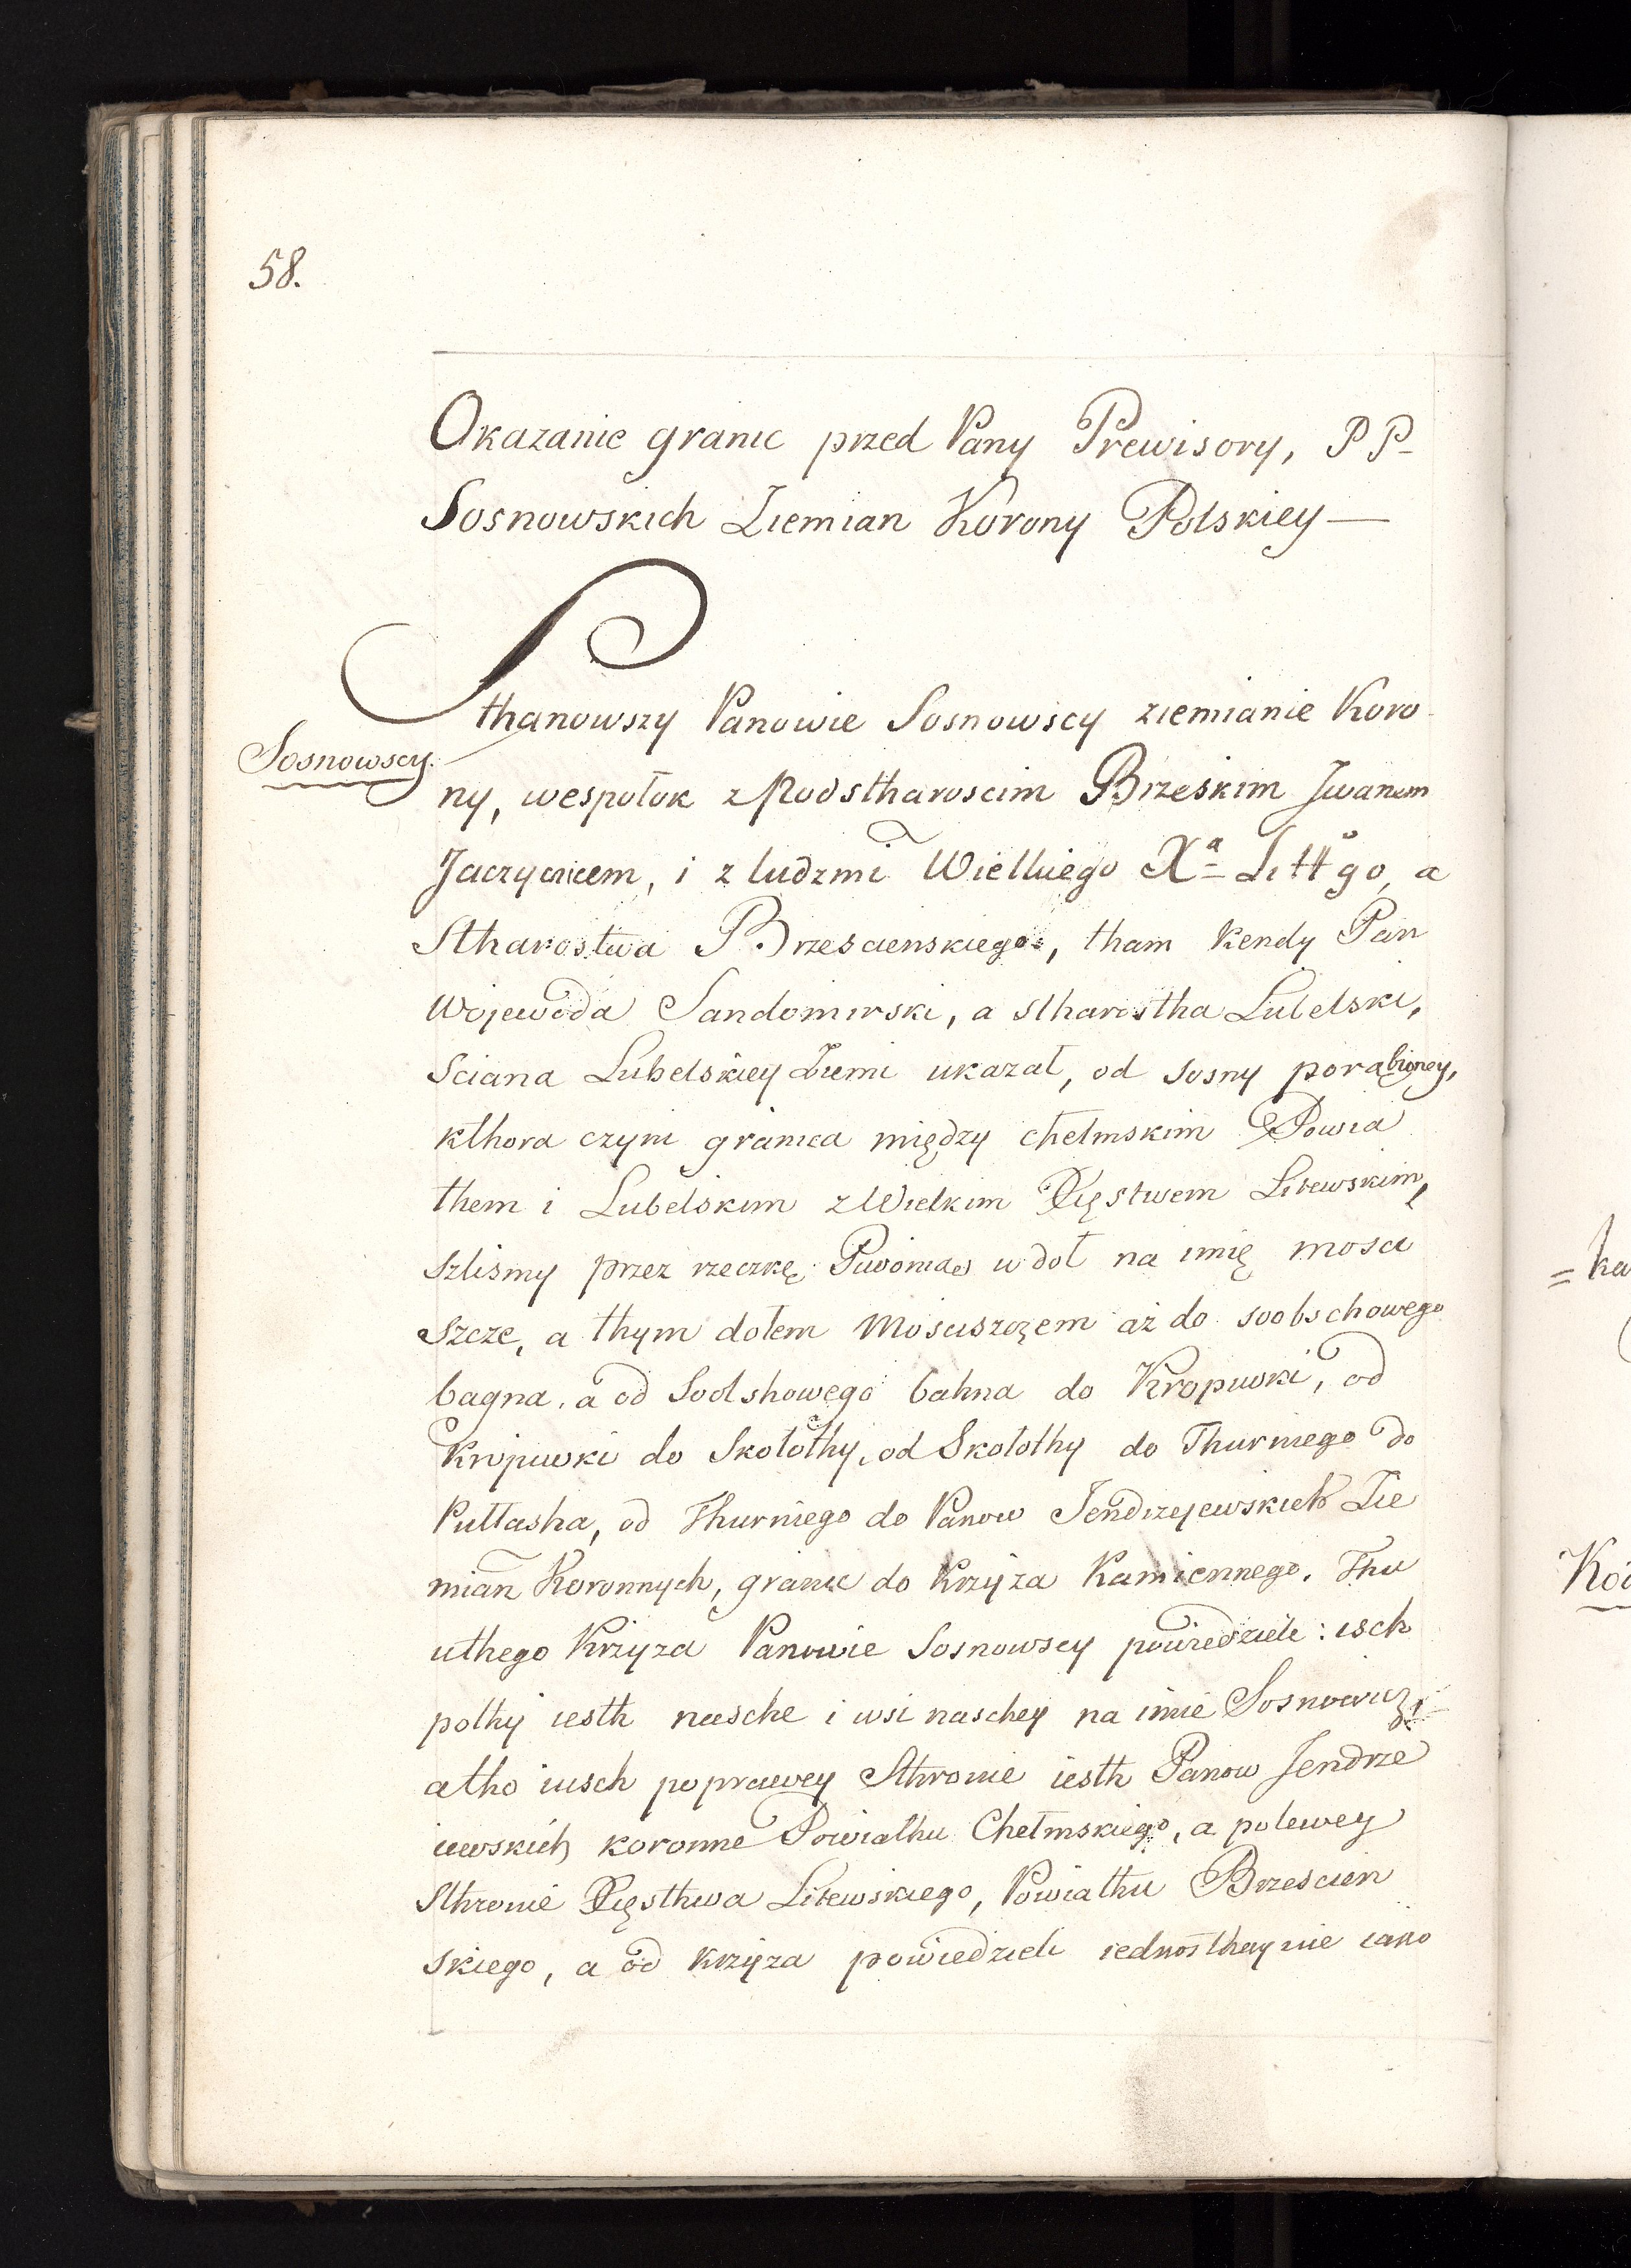 58.
Okazanie granic przed Pany Prewisory, PP
Sosnowskich Ziemian Korony Polskiey —
Sthanowszy Panowie Sosnowscy ziemianie Koro
Sosnowscy.
ny, wespołok z Podstharoscim Brzeskim Jwanem
i z ludzmi Wielkiego Xa Litt go, a
Stharostwa Brzescienskiego, tham kendy Pan
Wojewoda Sandomirski, a stharostha Lubelski,
Sciana Lubelskiey Ziemi ukazał, od sosny porąbioney,
kthora czyni granica między chełmskim Powia
them i Lubelskim z Wielkim Xięstwem Litewskim,
szlismy przez rzeczkę w doł na imię mosci
szcze, a thym dołem Mosciszczem aż do soobschowego
bagna, a od bahna do Kropiwki, od
Kropiwki do Skołothy, od Skołothy do Thurniego do
Pułtasha, od Thurniego do Panow Jendrzejewskich Zie
mian Koronnych, granic do Krzyża Kamiennego. Thu
uthego Krzyza Panowie Sosnowscy powiedzieli: isch
pothy iesth nasche i wsi naschey na imie
atho iusch poprawey Sthronie iesth Panow Jendrze
iewskich koronne Powiathu Chełmskiego, a polewey
Sthronie Xięsthwa Litewskiego, Powiathu Brzescien
skiego, a od krzyza powiedzieli iednosthaynie iako
= ka